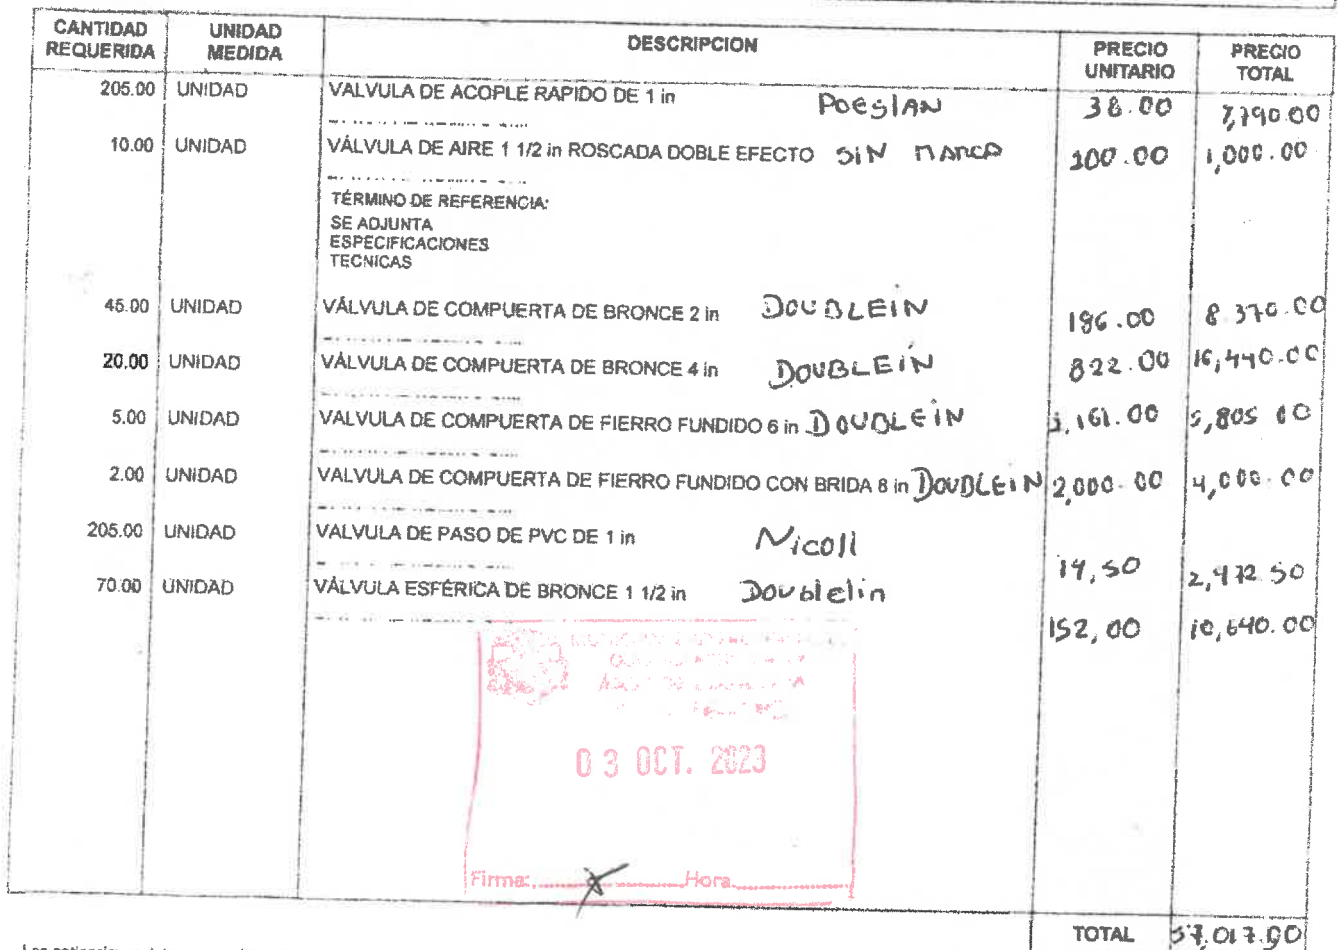 CANTIDAD REQUERIDA UNIDAD MEDIDA DESCRIPCION PRECIO UNITARIO PRECIO TOTAL
205.00 UNIDAD VALVULA DE ACOPLE RAPIDO DE 1 in POESIAN 38.00 7,790.00
10.00 UNIDAD VÁLVULA DE AIRE 1 1/2 in ROSCADA DOBLE EFECTO SIN MARCA 100.00 1,000.00
TÉRMINO DE REFERENCIA:
SE ADJUNTA
ESPECIFICACIONES
TECNICAS
45.00 UNIDAD VÁLVULA DE COMPUERTA DE BRONCE 2 in DOUBLEIN 186.00 8.370.00
20.00 UNIDAD VÁLVULA DE COMPUERTA DE BRONCE 4 in DOUBLEIN 822.00 16,440.00
5.00 UNIDAD VALVULA DE COMPUERTA DE FIERRO FUNDIDO 6 in DOUBLEIN 1,161.00 5,805 00
2.00 UNIDAD VALVULA DE COMPUERTA DE FIERRO FUNDIDO CON BRIDA 8 in DOUBLEIN 2,000.00 4,000.00
205.00 UNIDAD VALVULA DE PASO DE PVC DE 1 in Nicoll 14,50 2,972.50
70.00 UNIDAD VÁLVULA ESFÉRICA DE BRONCE 1 1/2 in Doublelin 152,00 10,640.00
03 OCT. 2023
Firma: Hora
TOTAL 57,017.50